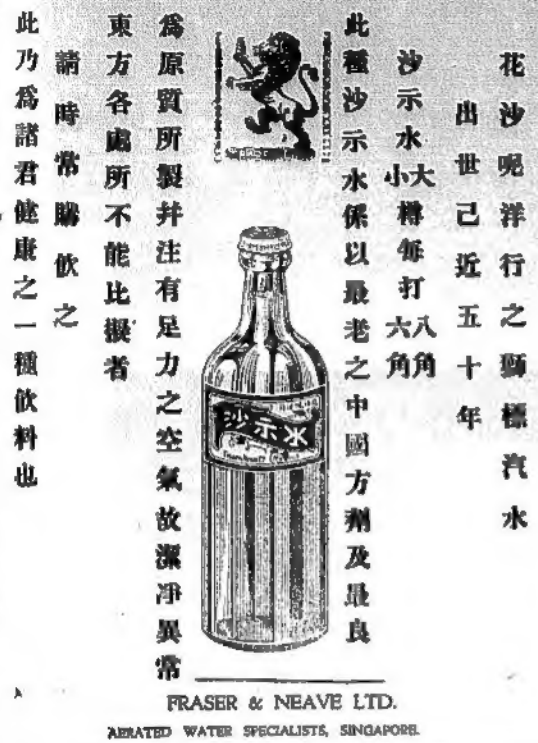 花沙呢洋行之獅標汽水
出世已近五十年
沙示水大樽每打八角
小樽每打六角
此種沙示水係以最老之中國方劑及最良
為原質所製并注有足力之空氣故潔凈異常
東方各處所不能比擬者
請時常購飲之
此乃為諸君健康之一種飲料也
沙示水
FRASER & NEAVE LTD.
AERATED WATER SPECIALISTS, SINGAPORE.